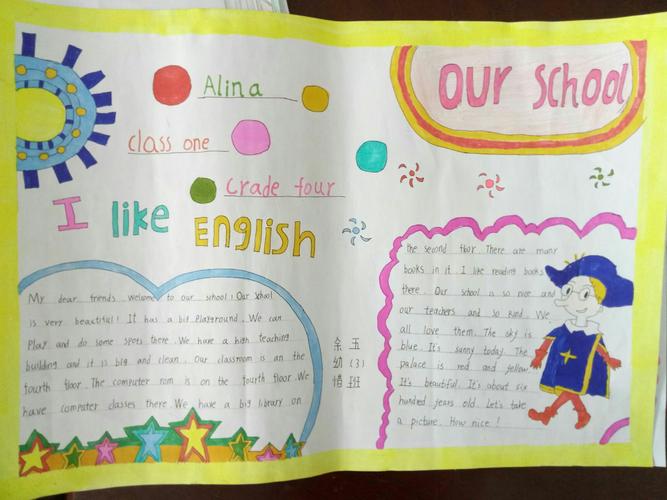 Alina
class one
Crade four
I like English
OUR SCHOOL
My dear friends welcome to our school! Our school
is very beautiful! It has a big playground. We can
play and do some spots there. We have a high teaching
building and it is big and clean. Our classroom is on the
fourth floor. The computer rom is on the fourth floor. We
have computer classes there. We have a big library on
余 五
幼 (3)
惜 班
the second floor. There are many
books in it. I like reading books
there. Our school is so nice and
our teachers and so kind. We
all love them. The sky is
blue. It's sunny today. The
palace is red and yellow.
It's beautiful. It's about six
hundred jears old. Let's take
a picture. How nice!